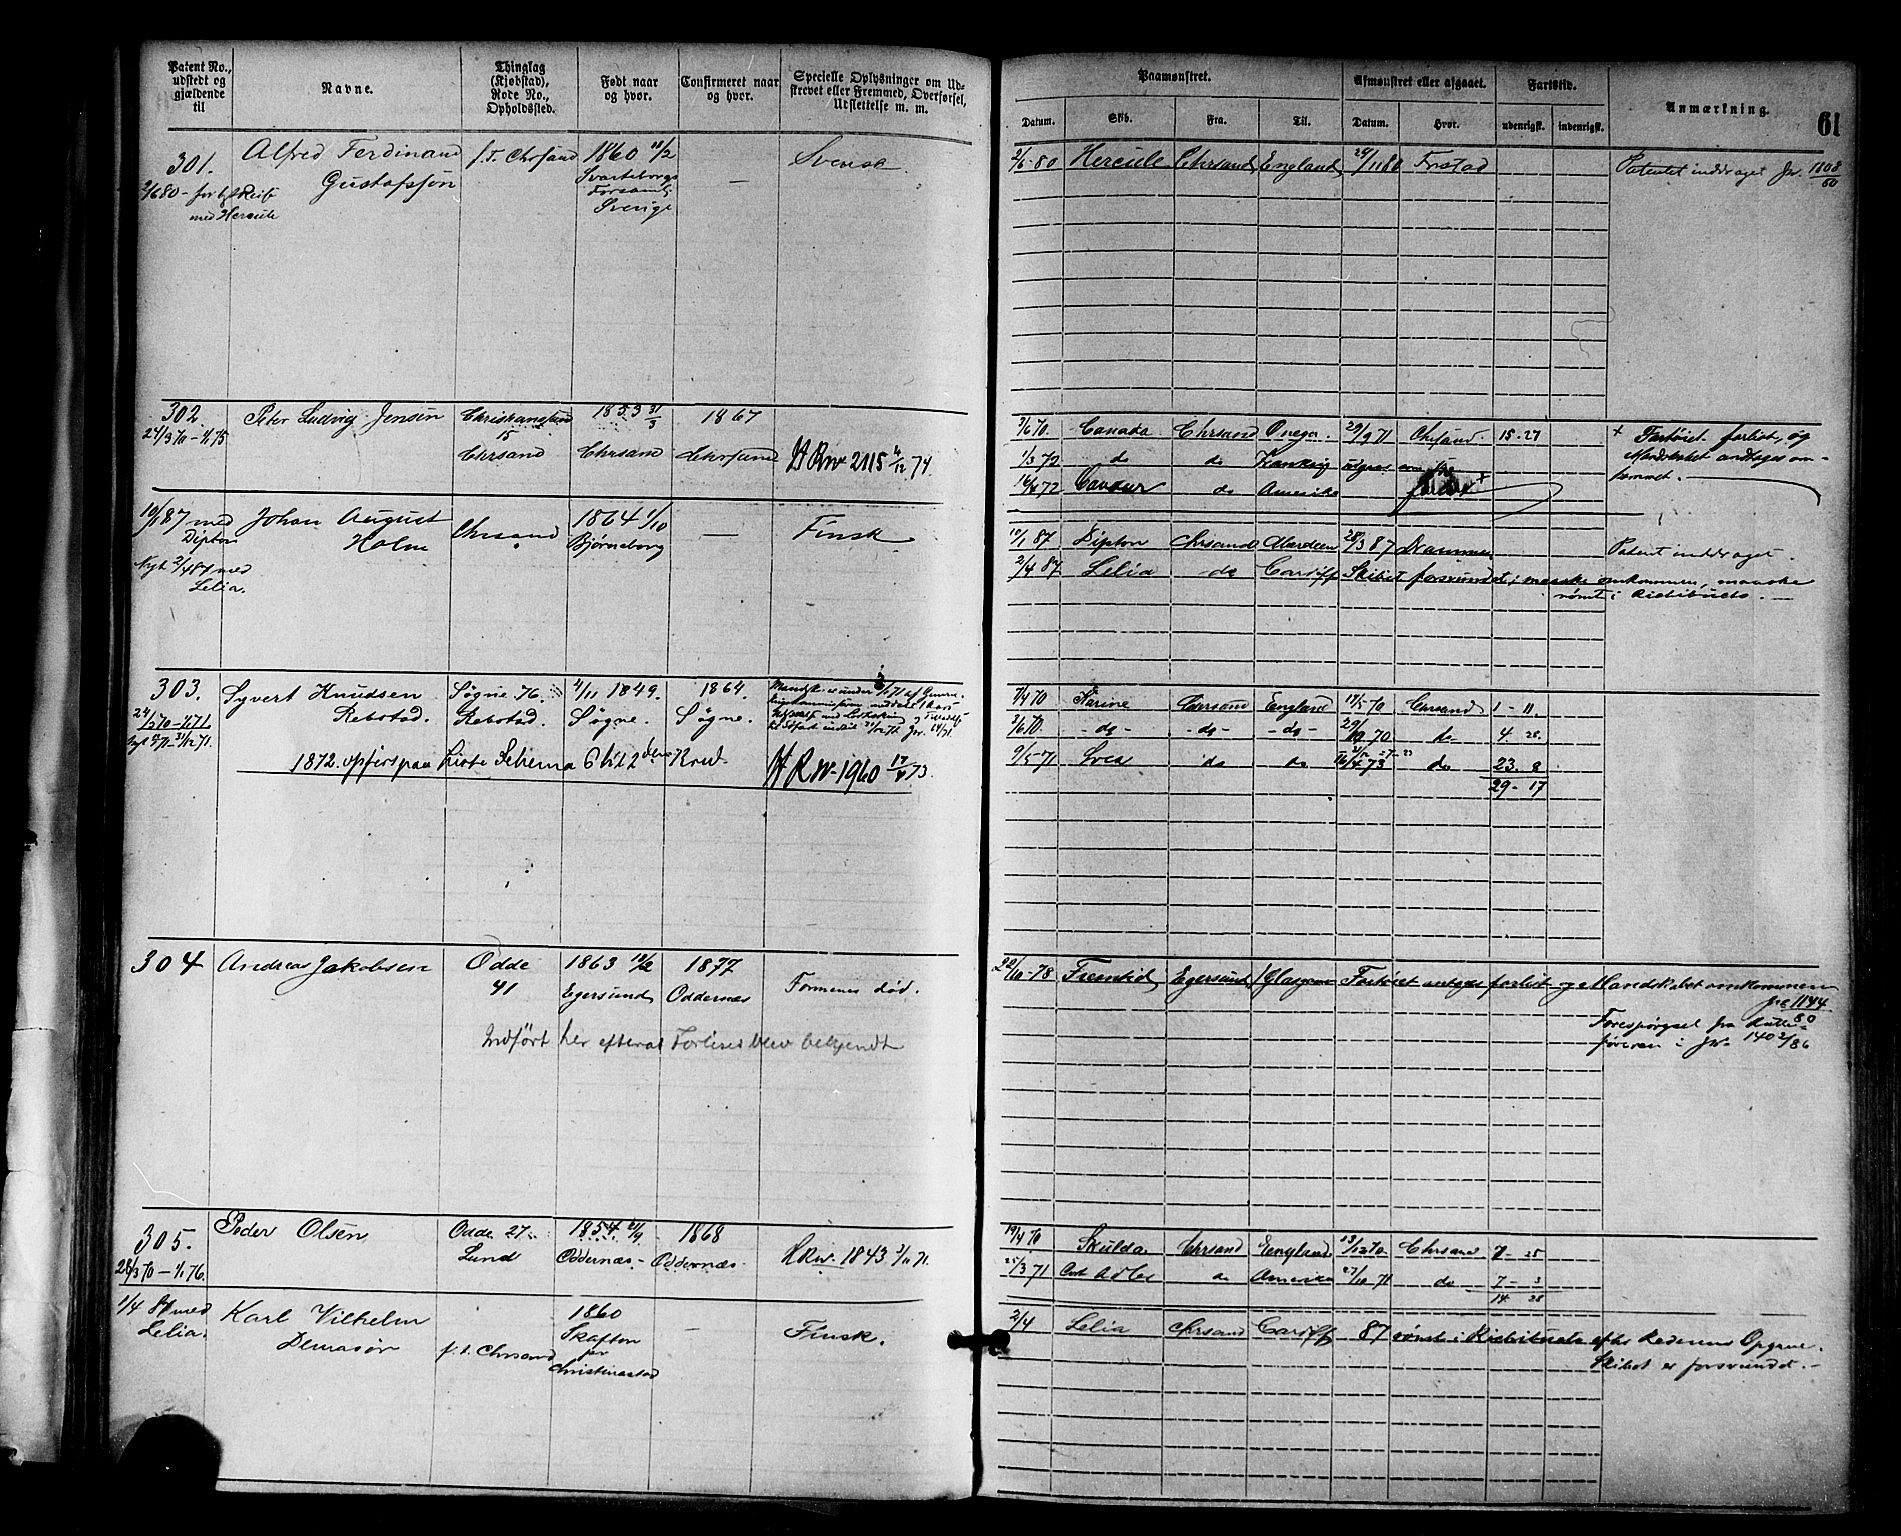 Patent No., udstedt og gjældende til
Navne.
Thinglag (Kjøbstad), Rode No., Opholdssted.
Født naar og hvor.
Confirmeret naar og hvor.
Specielle Oplysninger om Udskrevet eller Fremmed, Overførsel, Udslettelse m. m.
Paamønstret.
Afmønstret eller afgaaet.
Fartstid.
Anmærkning.
61
Datum.
Skib.
Fra.
Til.
Datum.
Hvor.
udenrigsk.
indenrigsk.
301.
Alfred Ferdinand
Gustafssøn
f. T. Chrsand
1860 18/2
Svarteborgs
Forsaml
Sverige
—
Svensk
2/6 80 - for
med Hercule
2/6-80 Hercule Chrsand England 29/11 80 Frstad
Patentet inddraget Jr. 1808/80
302.
24/3 70 - 1/1 75
Peter Ludvig Jensen
Christianssand
15
Chrsand
1853 31/3
Chrsand
1867
Chrsand
H Rw 2115 4/12 74
2/6 70. Canada Chrsand Onega. 29/9 71 Chrsand 15-27
1/3 72 do do
16/8 72 Cavour do Amerika
+ Fartøiet forlist, og
Mandskabet andtages om-
kommet.
10/1 87 med
Dipton
Nyt 2/4 87 med
Lelia.
Johan August
Holm
Chrsand
1864 1/10
Bjørneborg
—
Finsk
10/1 87 Dipton Chrsand Aberdeen 28/3 87 Drammen
Patent inddraget.
2/4 87 Lelia - do Cardiff Skibet forsvundet, maaske omkommen, maaske
rømt i Rietibucto.
303.
24/3 70 - 1/1 71.
Syvert Knudsen
Rebstad.
Søgne 76.
Rebstad.
4/11 1849.
Søgne.
1864.
Søgne.
1872. opført paa Liste Schema 6
H Rw-1960 17/4 73.
7/4 70 Karine Chrsand England 17/5 70 Chrsand 1-11.
2/6 70. -do- -do- -do- 29/10 70 do 4-28.
9/5-71 Svea do do 16/4 73 do 23. 8
29-17
304
Andreas Jakobsen
Odde
41
1863 18/2
Egersund
1877
Oddernes
Formenes død.
Indført her efterat Forliset blev bekjendt
22/10-78 Fremtid Egersund Glasgow Fartøiet antages forlist og Mandskabet omkommen
Jnr 1144/80
Forespørgsel fra Rulle-
føreren i Jr. 140 2/86
305.
28/3 70 - 1/1 76.
Peder Olsen
Odde 27
Lund
1854 21/9
Oddernæs -
1868
Oddernæs
H Rw. 1843 3/11 71.
19/4 70 Skulda Chrsand England 13/12 70 Chrsand 7-25
25/3 71 Adler do Amerika 27/10 71 do 7-3
14 28
1/4 87 med
Lelia.
Karl Vilhelm
f. T. Chrsand
1860
Skafton
pr
Christinestad
—
Finsk.
2/4 Lelia Chrsand Cardiff 87 rømt i Richibucto efter Rederens Opgave.
Skibet er forsvundet.